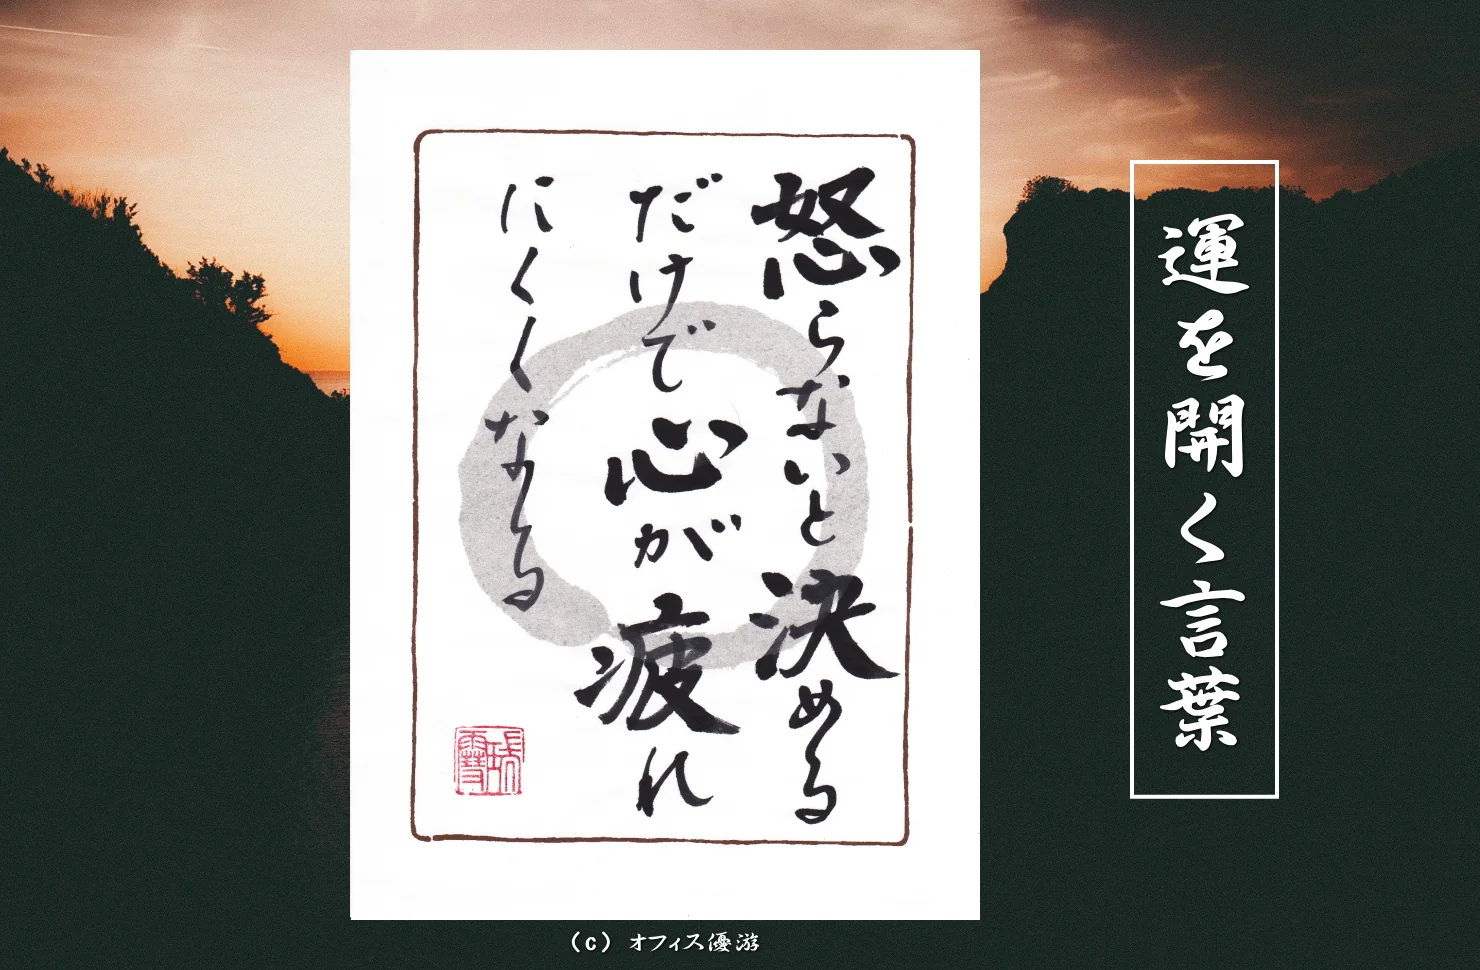 運を開く言葉
怒らないと決める
だけで心が疲れ
にくくなる
(c) オフィス優游